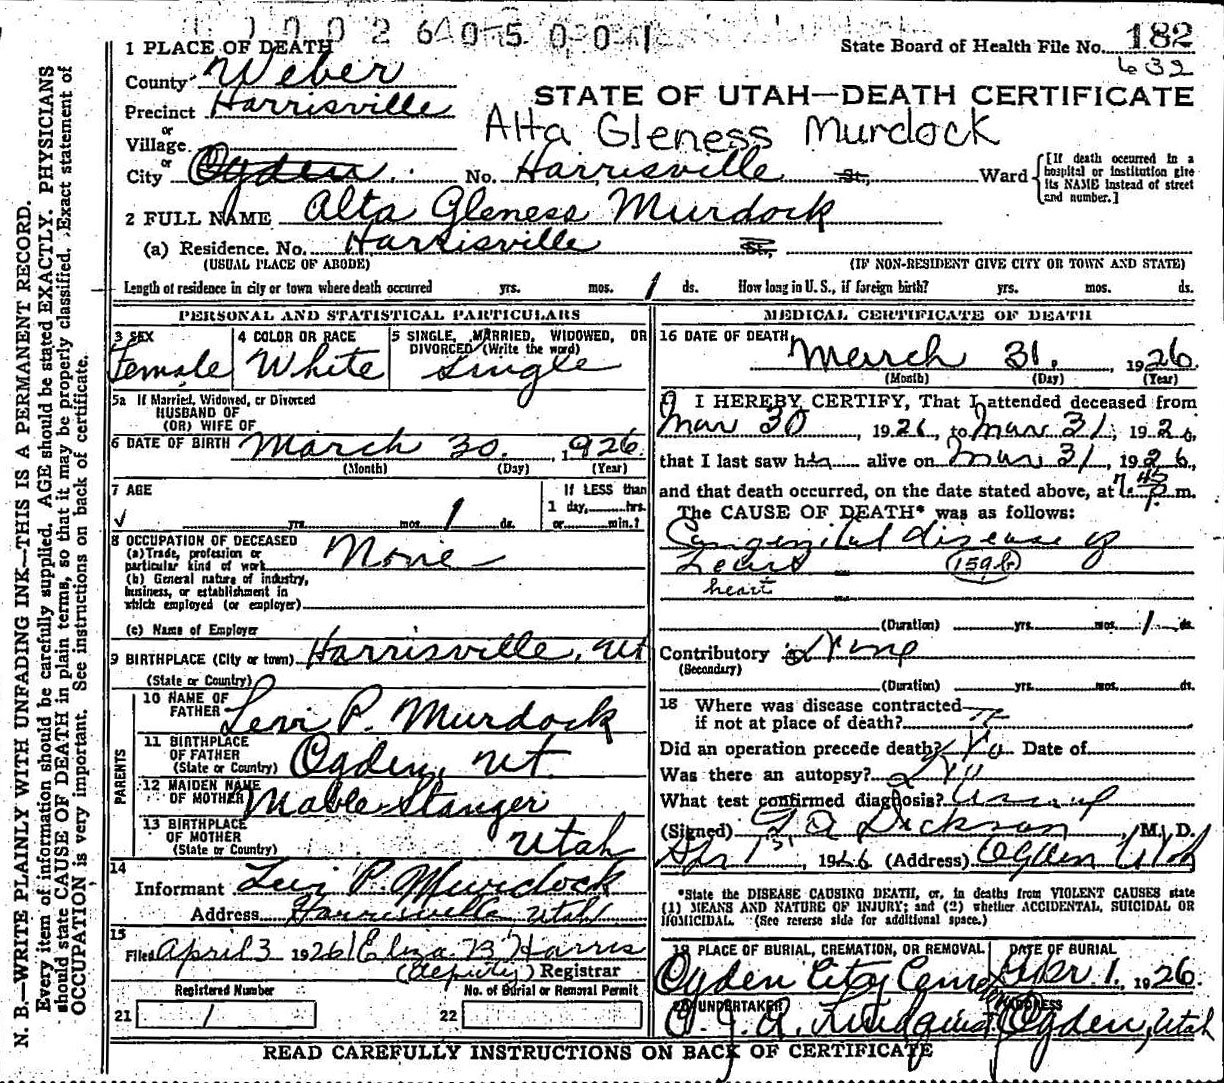 1 0 0 2 6 0 5 0 0 1
1 PLACE OF DEATH
State Board of Health File No. 182
632
County Weber
STATE OF UTAH—DEATH CERTIFICATE
Precinct Harrisville
Alta Gleness Murdock
or
Village
or
City Ogden No. Harrisville St., Ward
[If death occurred in a hospital or institution give its NAME instead of street and number.]
2 FULL NAME Alta Gleness Murdock
(a) Residence. No. Harrisville St.,
(USUAL PLACE OF ABODE) (IF NON-RESIDENT GIVE CITY OR TOWN AND STATE)
Length of residence in city or town where death occurred yrs. mos. 1 ds. How long in U. S., if foreign birth? yrs. mos. ds.
PERSONAL AND STATISTICAL PARTICULARS
3 SEX
Female
4 COLOR OR RACE
White
5 SINGLE, MARRIED, WIDOWED, OR DIVORCED (Write the word)
Single
5a If Married, Widowed, or Divorced
HUSBAND OF
(OR) WIFE OF
6 DATE OF BIRTH March 30. 1926
(Month) (Day) (Year)
7 AGE
If LESS than
1 day, hrs.
yrs. mos. 1 ds. or min.?
8 OCCUPATION OF DECEASED
(a) Trade, profession or particular kind of work None
(b) General nature of industry, business, or establishment in which employed (or employer)
(c) Name of Employer
9 BIRTHPLACE (City or town) Harrisville, Ut
(State or Country)
PARENTS
10 NAME OF FATHER Levi P. Murdock
11 BIRTHPLACE OF FATHER (State or Country) Ogden, Ut.
12 MAIDEN NAME OF MOTHER Mable Stanger
13 BIRTHPLACE OF MOTHER (State or Country) Utah
14
Informant Levi P. Murdock
Address Harrisville Utah
15
Filed April 3 1926 Eliza B Harris
(deputy) Registrar
Registered Number No. of Burial or Removal Permit
21 1 22
MEDICAL CERTIFICATE OF DEATH
16 DATE OF DEATH
March 31. 1926.
(Month) (Day) (Year)
I HEREBY CERTIFY, That I attended deceased from
Mar 30, 1926, to Mar 31, 1926,
that I last saw her alive on Mar 31, 1926,
and that death occurred, on the date stated above, at 7:45 P. m.
The CAUSE OF DEATH* was as follows:
Congenital disease of
Heart 159b
heart
(Duration) yrs. mos. 1 ds.
Contributory None
(Secondary)
(Duration) yrs. mos. ds.
18 Where was disease contracted
if not at place of death?
Did an operation precede death? No Date of
Was there an autopsy? No
What test confirmed diagnosis?
(Signed) Dickson, M. D.
Apr 1, 1926 (Address) Ogden Utah
*State the DISEASE CAUSING DEATH, or, in deaths from VIOLENT CAUSES state
(1) MEANS AND NATURE OF INJURY; and (2) whether ACCIDENTAL, SUICIDAL OR
HOMICIDAL. (See reverse side for additional space.)
19 PLACE OF BURIAL, CREMATION, OR REMOVAL
Ogden City Cem
DATE OF BURIAL
Apr. 1, 1926.
20 UNDERTAKER
O. J. A. Lindquist
ADDRESS
Ogden, Utah
READ CAREFULLY INSTRUCTIONS ON BACK OF CERTIFICATE
N. B.—WRITE PLAINLY WITH UNFADING INK—THIS IS A PERMANENT RECORD.
Every item of information should be carefully supplied. AGE should be stated EXACTLY. PHYSICIANS
should state CAUSE OF DEATH in plain terms, so that it may be properly classified. Exact statement of
OCCUPATION is very important. See instructions on back of certificate.